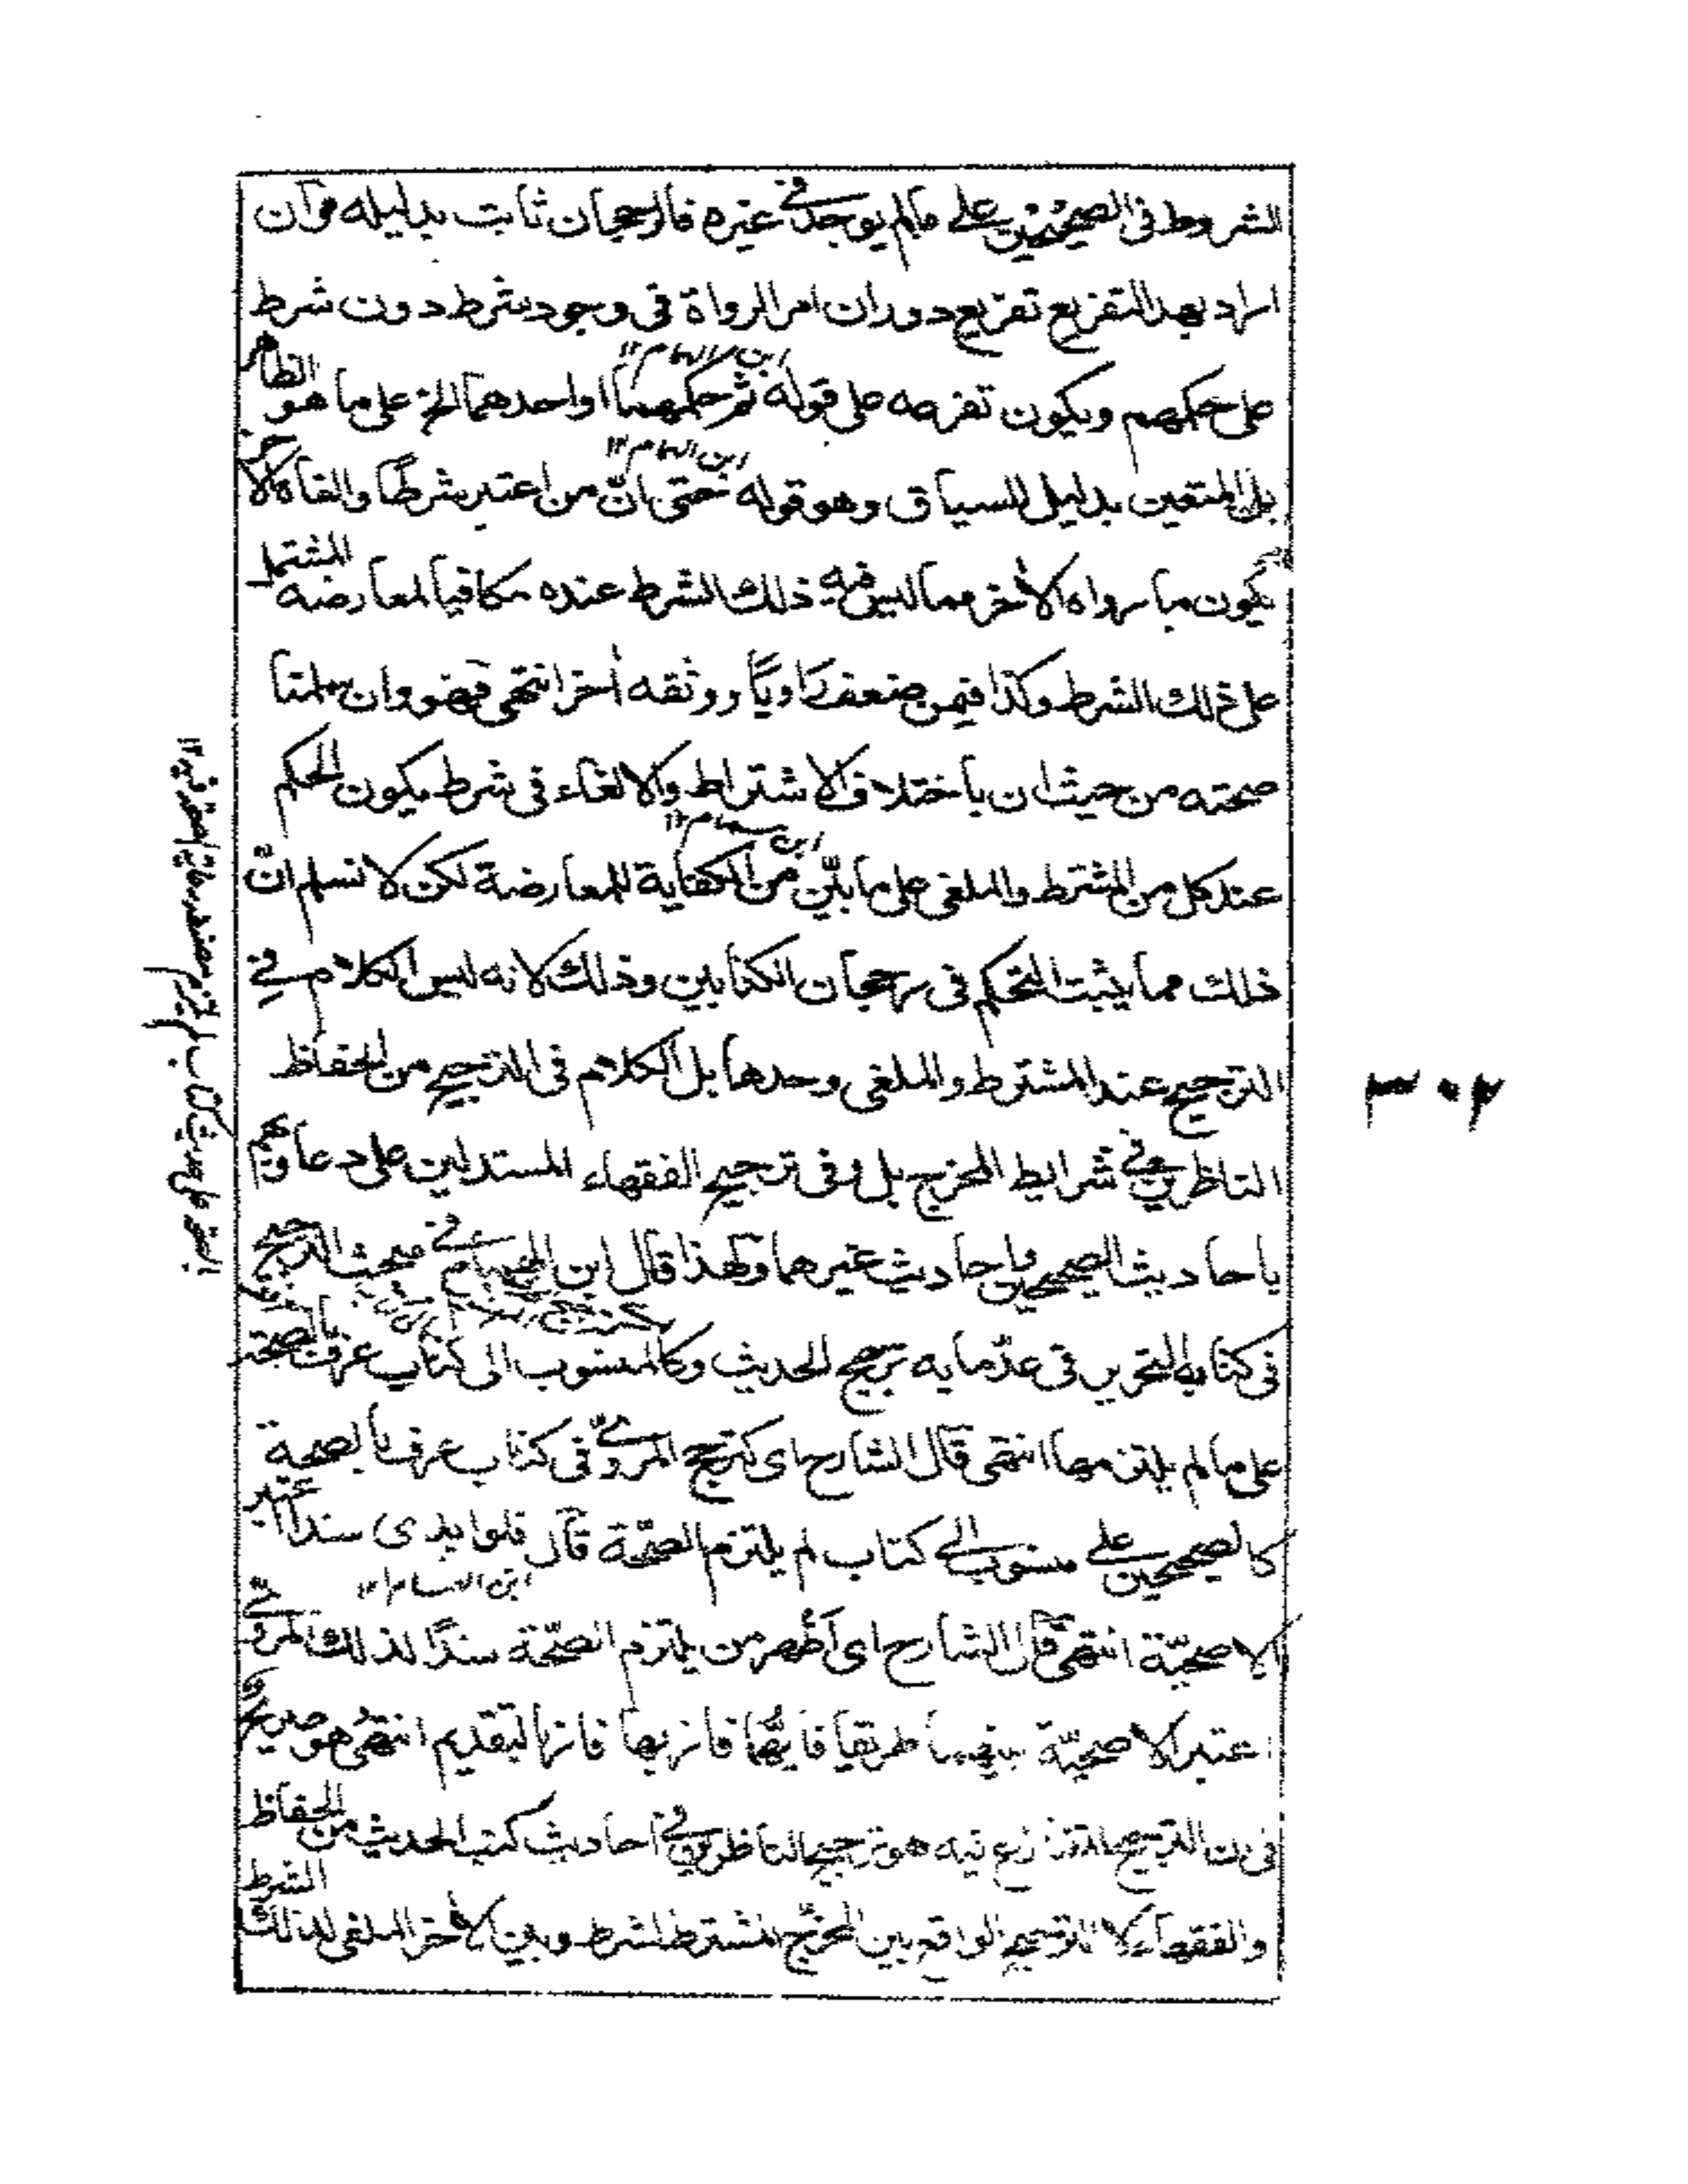 الشروط في الصحيحين على ما لم يوجد في غيره فالرجحان ثابت بدليله وان
اراد بهذا التفريع تفريع دوران امر الرواة في وجود شرط دون شرط
على حكمهم ويكون تفرعه على قوله ثم حكمهما او احدهما الخ على ما هو الظاهر
ابن الهمام ١٢
بل المتعين بدليل السياق وهو قوله حتى ان من اعتبر شرطًا والغاه الآخر
ابن الهمام ١٢
يكون ما رواه الآخر مما ليس فيه ذلك الشرط عنده مكافيا لمعارضه المشتمل
على ذلك الشرط وكذا فيمن ضعف راويًا ووثقه آخر انتهى فهو وان سلمنا
صحته من حيث ان باختلاف الاشتراط والالغاء في شرط يكون الحكم
عند كل من المشترط والملغى على ما بيّن من الكفاية للمعارضة لكن لا نسلم انّ
ابن همام ١٢
ذلك مما يثبت التحكم في رجحان الكتابين وذلك لانه ليس الكلام في
الترجيح عند المشترط والملغى وحدها بل الكلام في الترجيح من الحفاظ
الناظرين في شرايط المخرج بل وفى ترجيح الفقهاء المستدلين على دعاويهم
باحاديث الصحيحين واحاديث غيرهما ولهذا قال ابن الهمام في مبحث الترجيح
في كتابه التحرير في عدّ ما به ترجيح الحديث وكالمنسوب الى كتاب عرف بالصحة
على ما لم يلتزمها انتهى قال الشارح اى كترجيح المروىّ في كتاب عرف بالصحة
كالصحيحين على منسوب الى كتاب لم يلتزم الصحّة قال فلو ابدى سندًا اعتبر
ابن الهمام ١٢
الاصحيّة انتهى قال الشارح اى اظهر من يلتزم الصحّة سندًا لذلك المروىّ
اعتبر الاصحيّة بينهما طريقا فايّهما فاز بها فاز بالتقديم انتهى هو صريح
في ان الترجيح المتنازع فيه هو ترجيح الناظرين في احاديث كتب الحديث من الحفاظ
والفقهاء لا الترجيح الواقع بين المخرّج المشترط لشرط وبين الآخر الملغى لذلك الشرط
٣٠٢